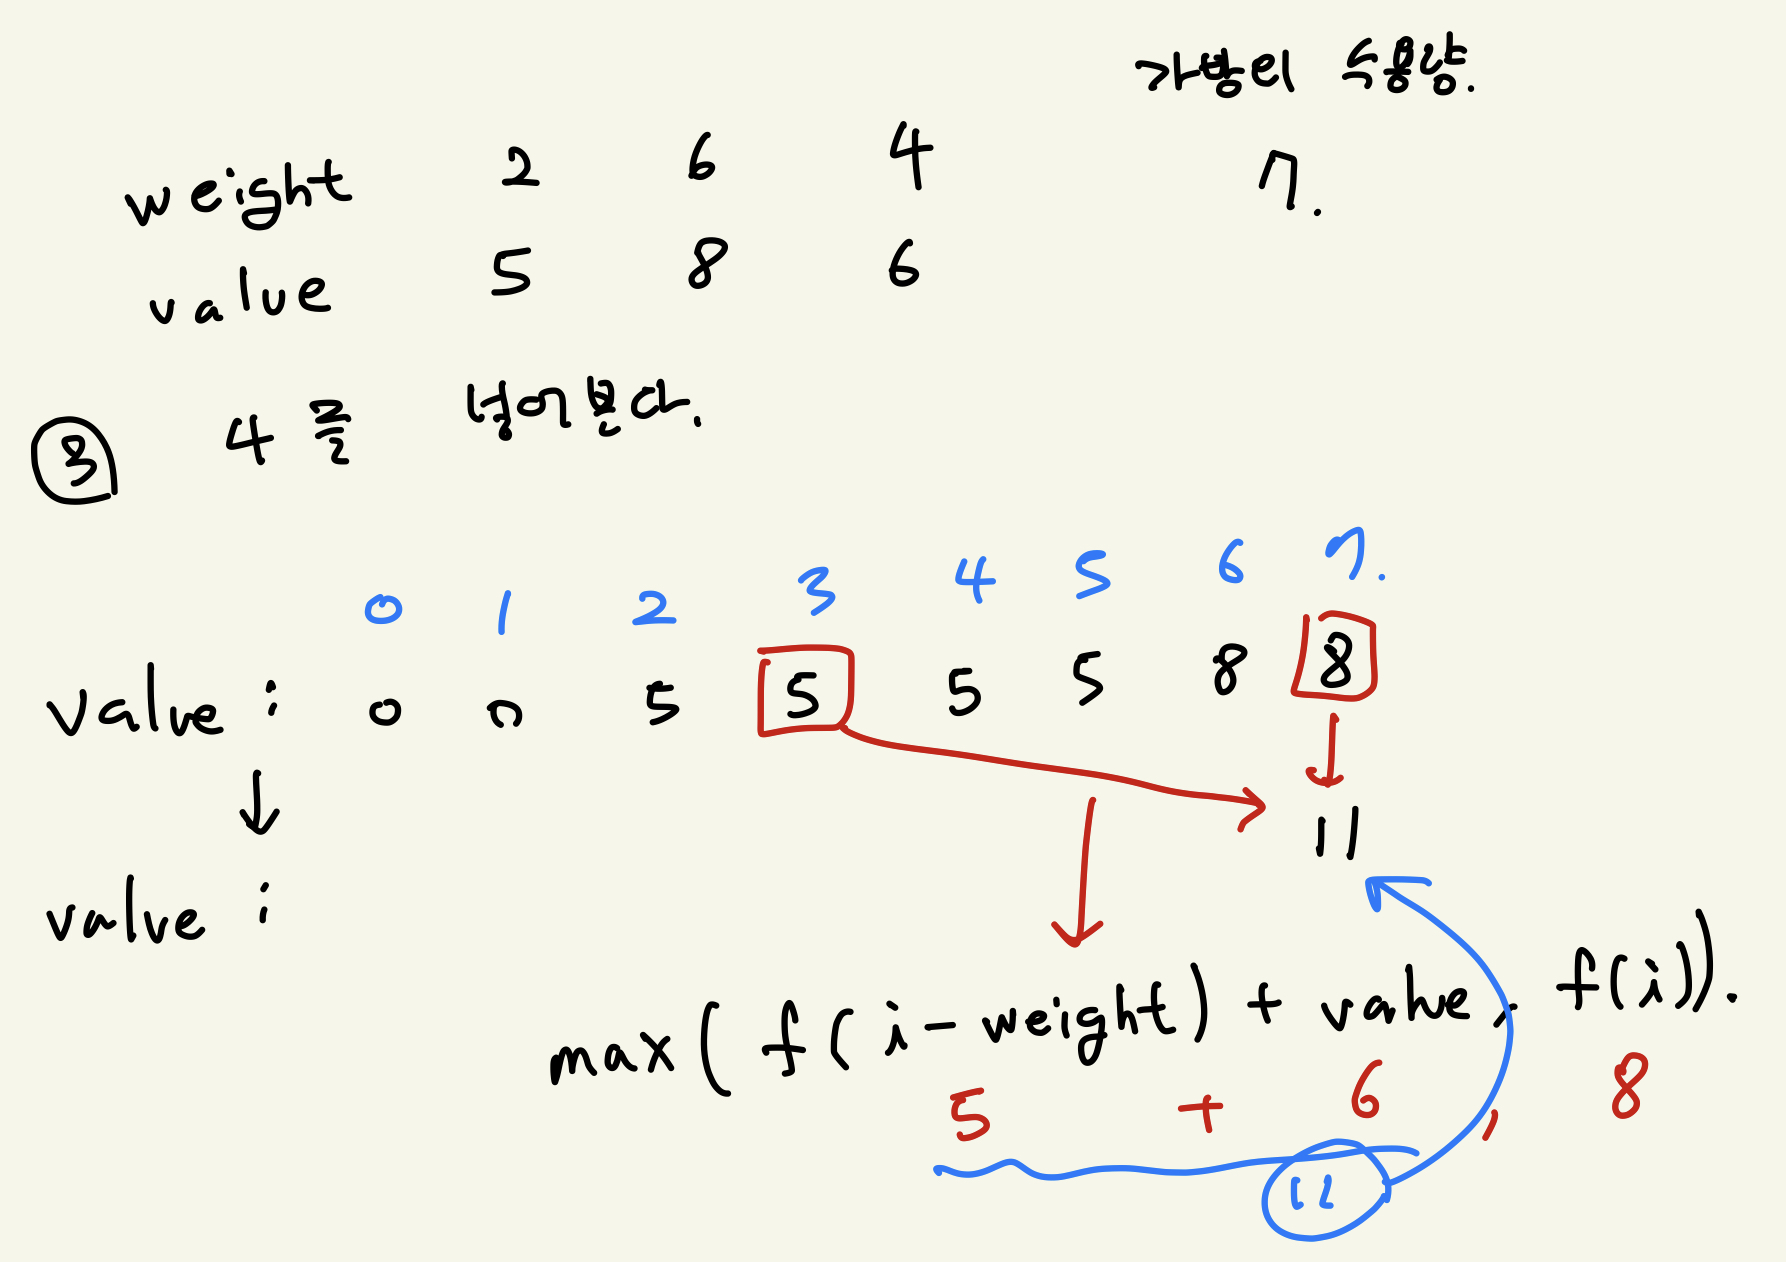 가방의 수용량.
weight 2 6 4 7.
value 5 8 6
③ 4를 넣어본다.
0 1 2 3 4 5 6 7.
value : 0 0 5 5 5 5 8 8
11
value :
max( f( i - weight) + value, f(i)).
5 + 6 , 8
11